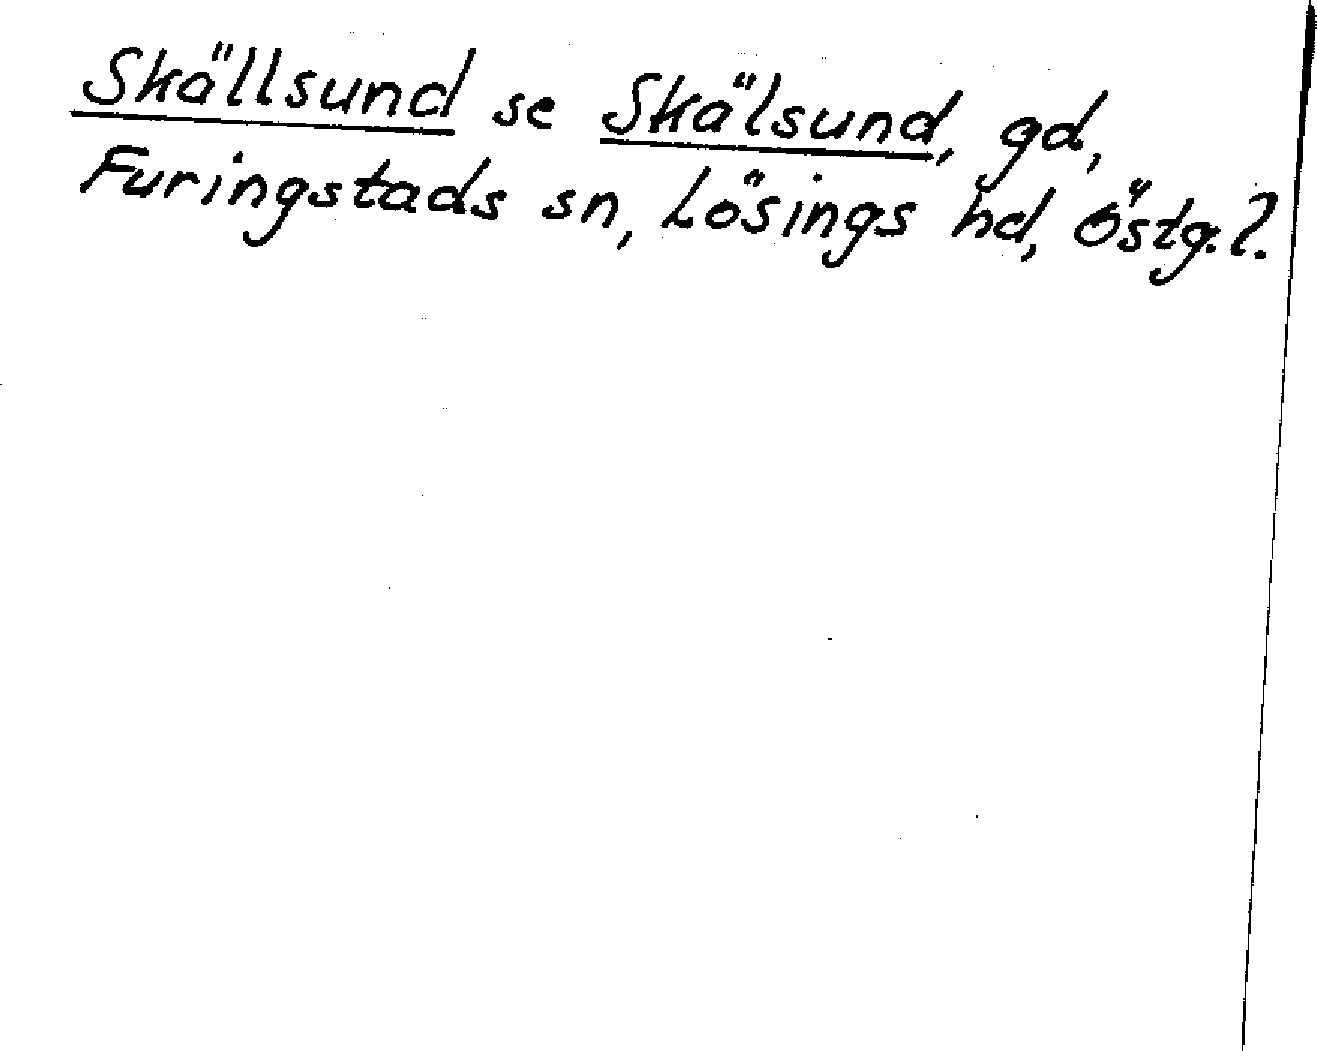 Skällsund se Skälsund, gd,
Furingstads sn, Lösings hd, Östg. l.